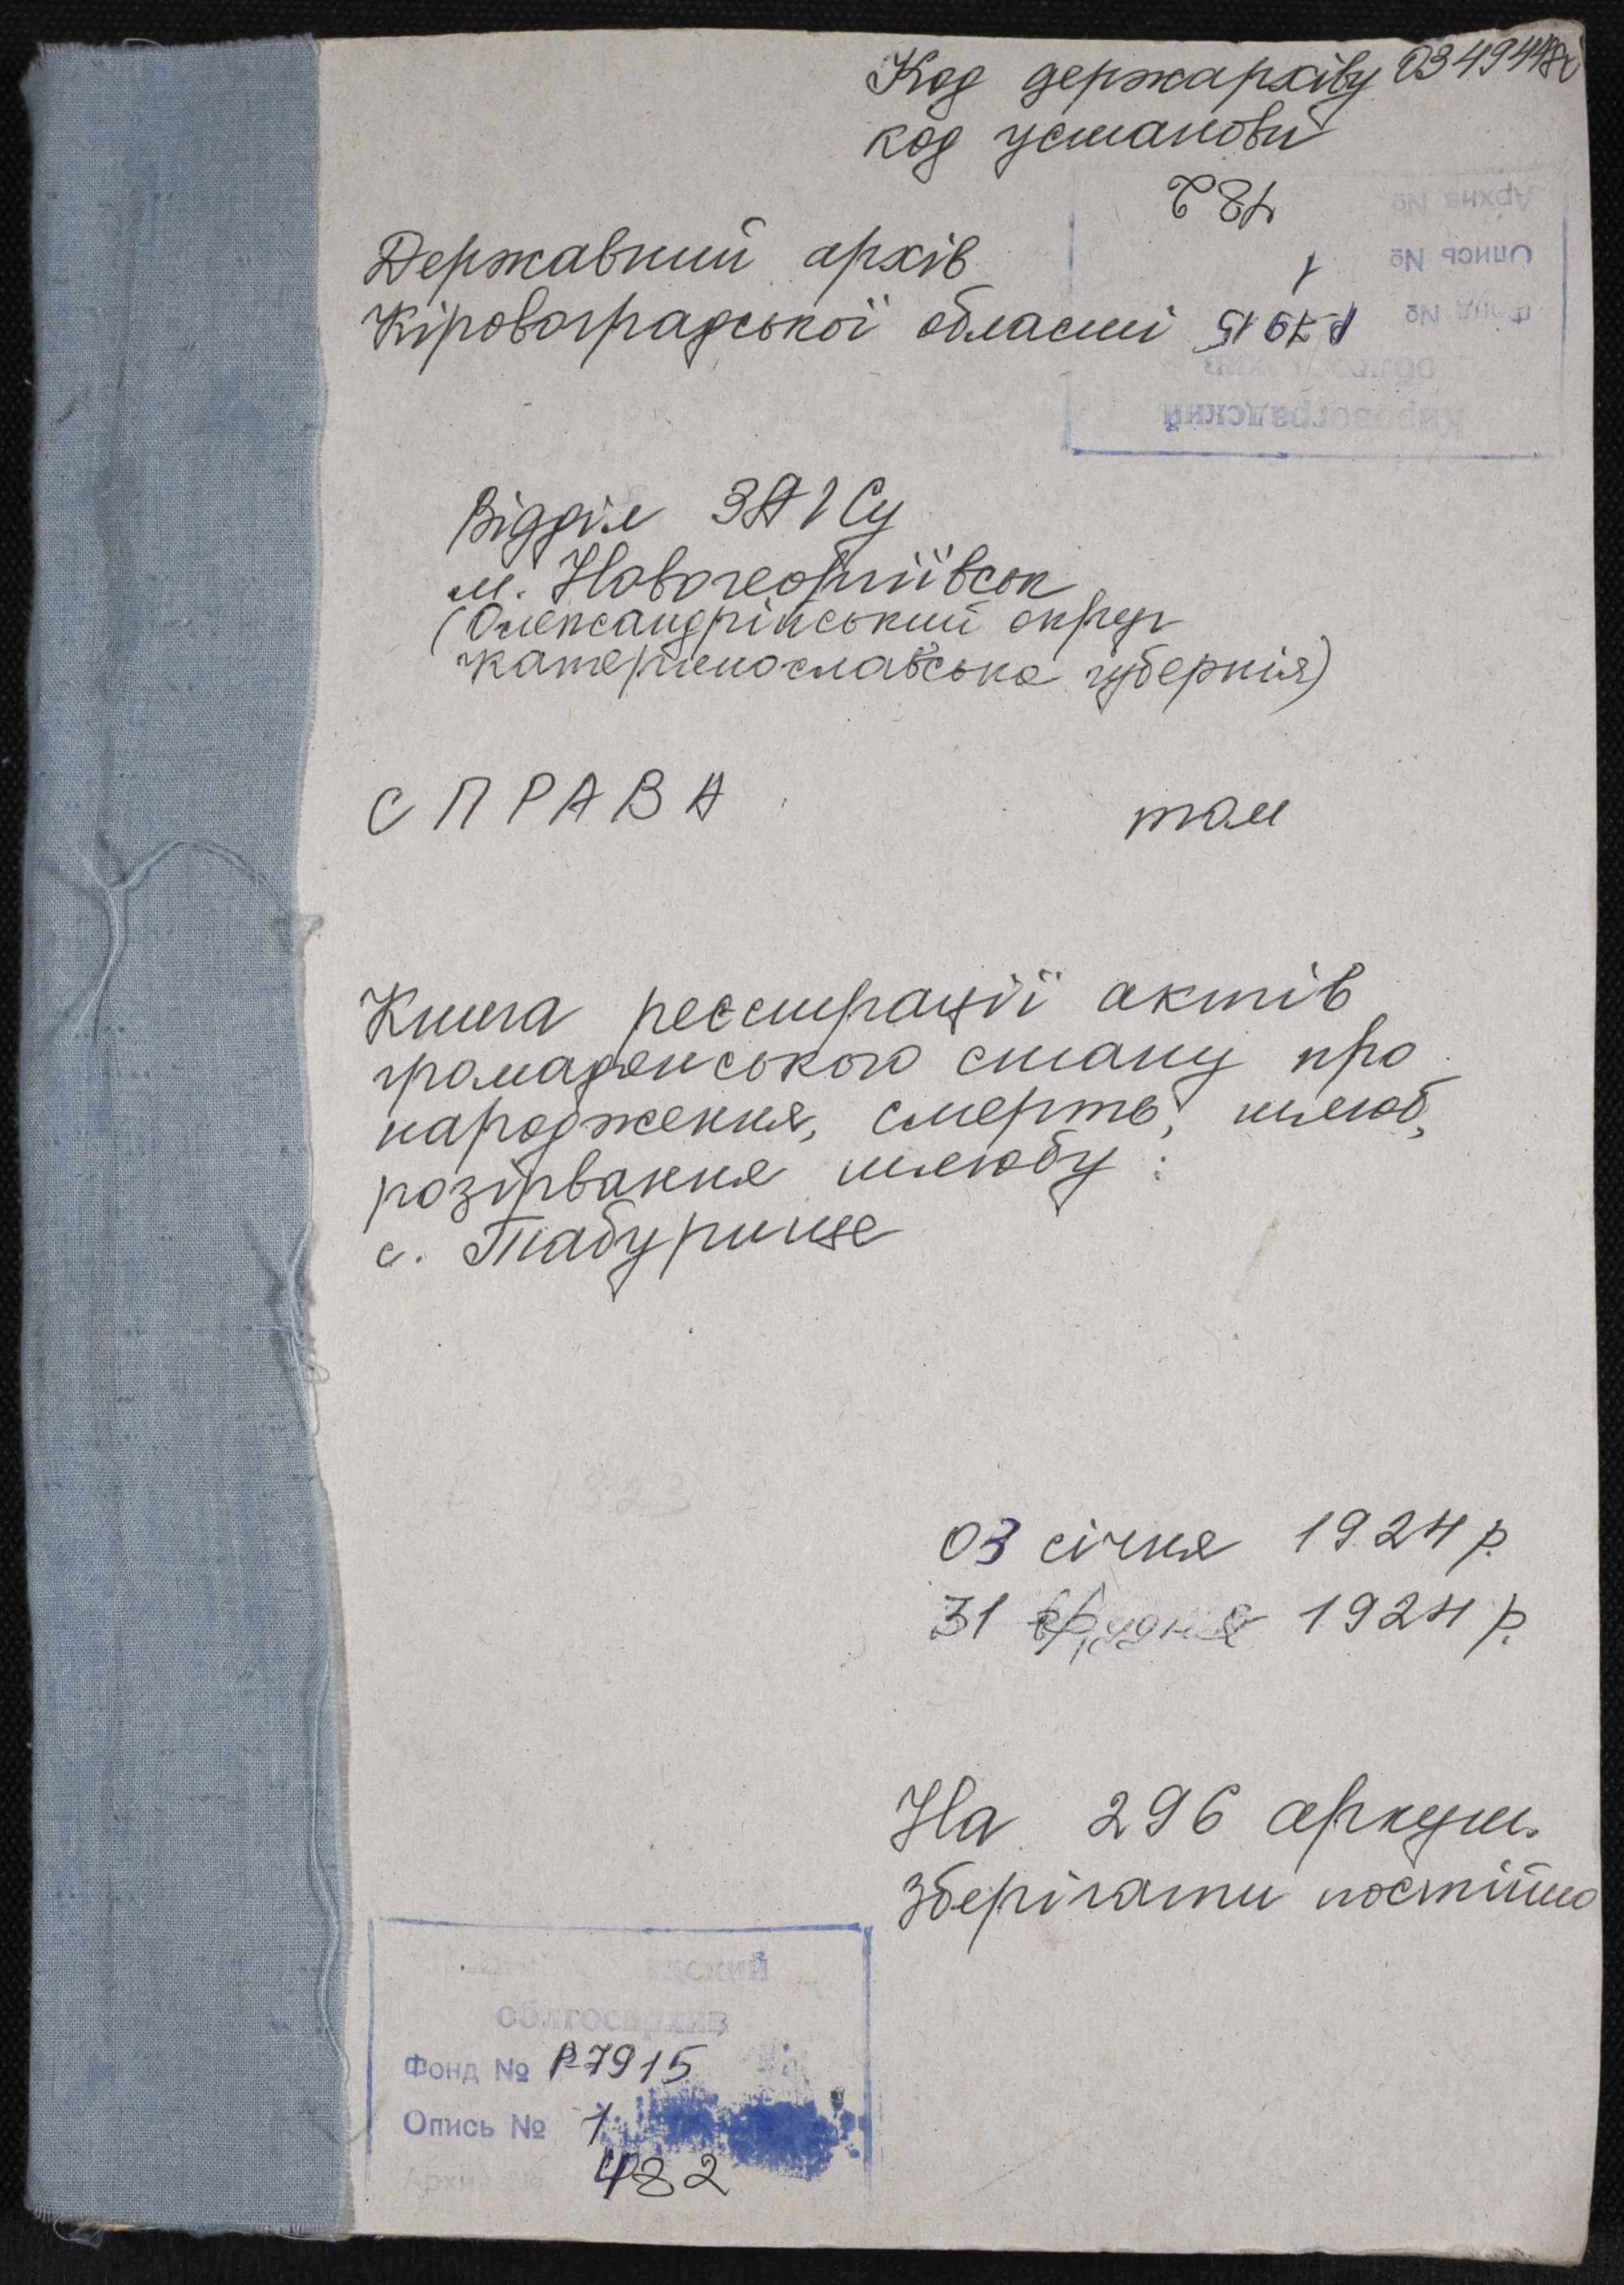 Код держархіву 03494480
код установи
482
Архив №
Державний архів
1
Опись №
Кіровоградської області
Р-7915
Фонд №
облгосархив
Кировоградский
Відділ ЗАГСу
м. Новогеоргіївськ
(Олександрійський округ
Катеринославська губернія)
СПРАВА том
Книга реєстрації актів
громадянського стану про
народження, смерть, шлюб,
розірвання шлюбу:
с. Табурище
03 січня 1924 р.
31 грудня 1924 р.
На 296 аркуш.
Зберігати постійно
облгосархив
Фонд № Р-7915
Опись № 1
Архив № 482